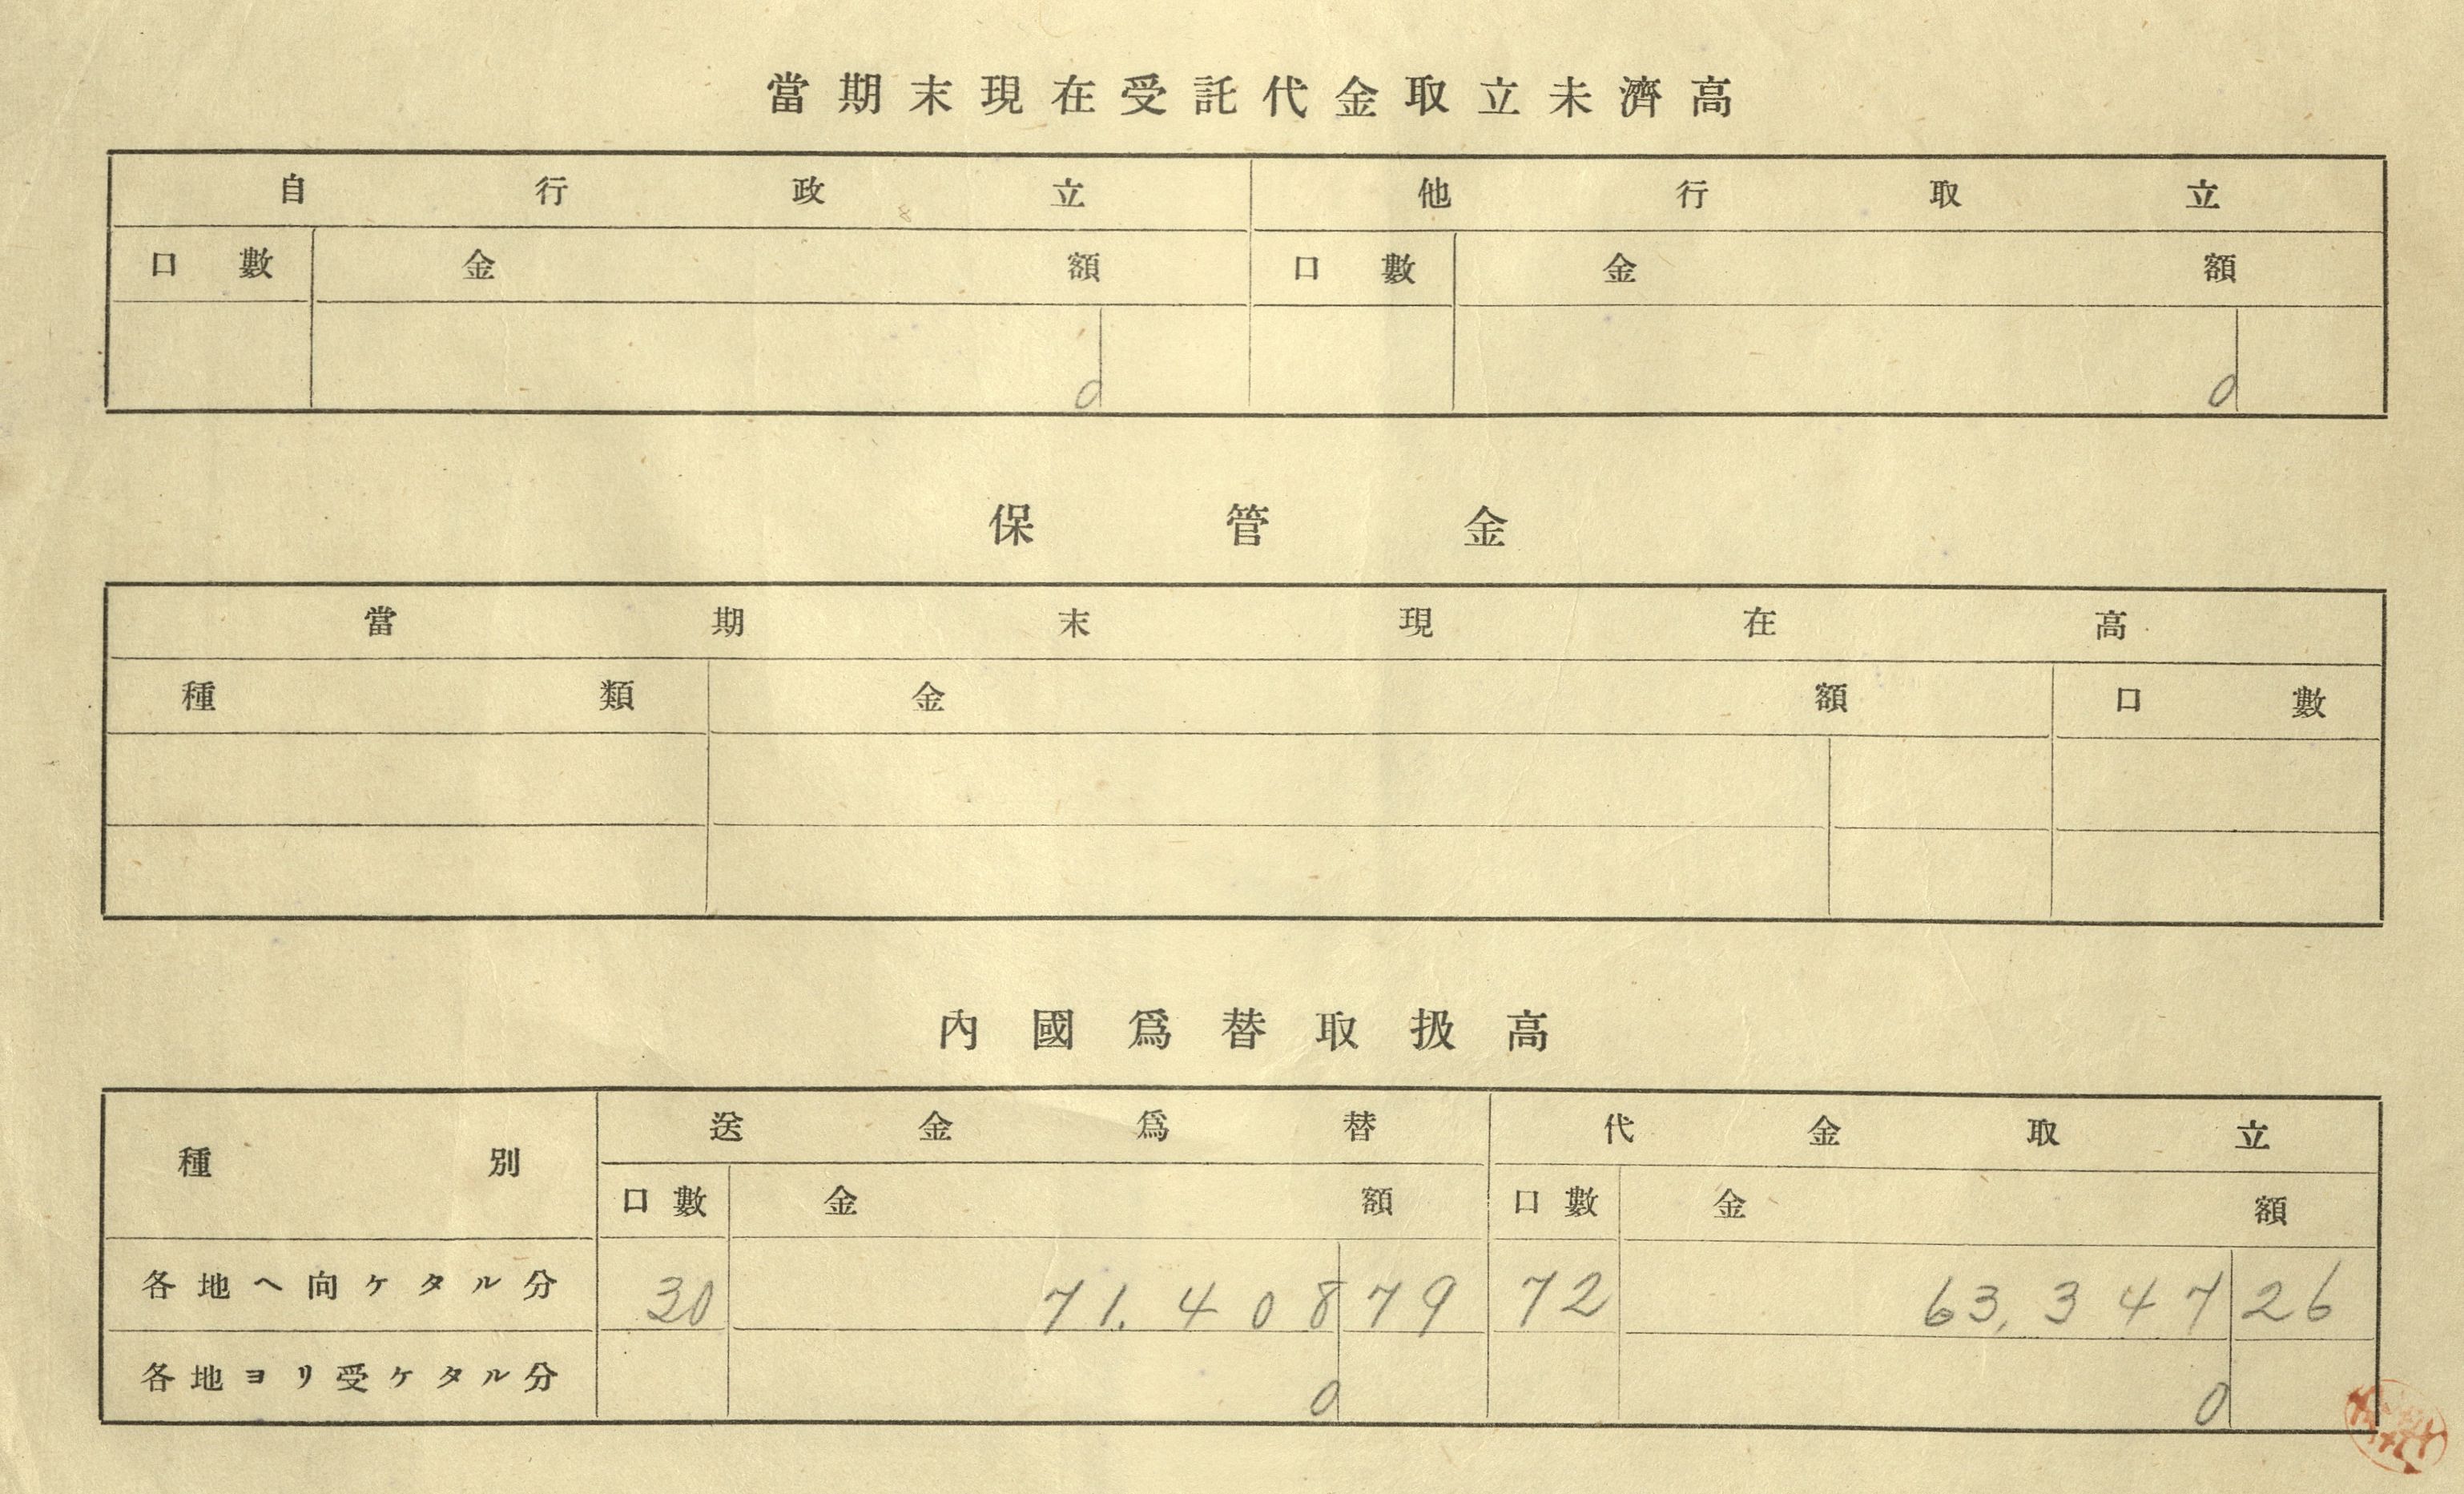 當期末現在受託代金取立未濟高
自行政立 他行取立
口數 金額 口數 金額
0 0
保管金
當期末現在高
種類 金額 口數
內國爲替取扱高
種別 送金爲替 代金取立
口數 金額 口數 金額
各地ヘ向ケタル分 30 71.408 79 72 63,347 26
各地ヨリ受ケタル分 0 0